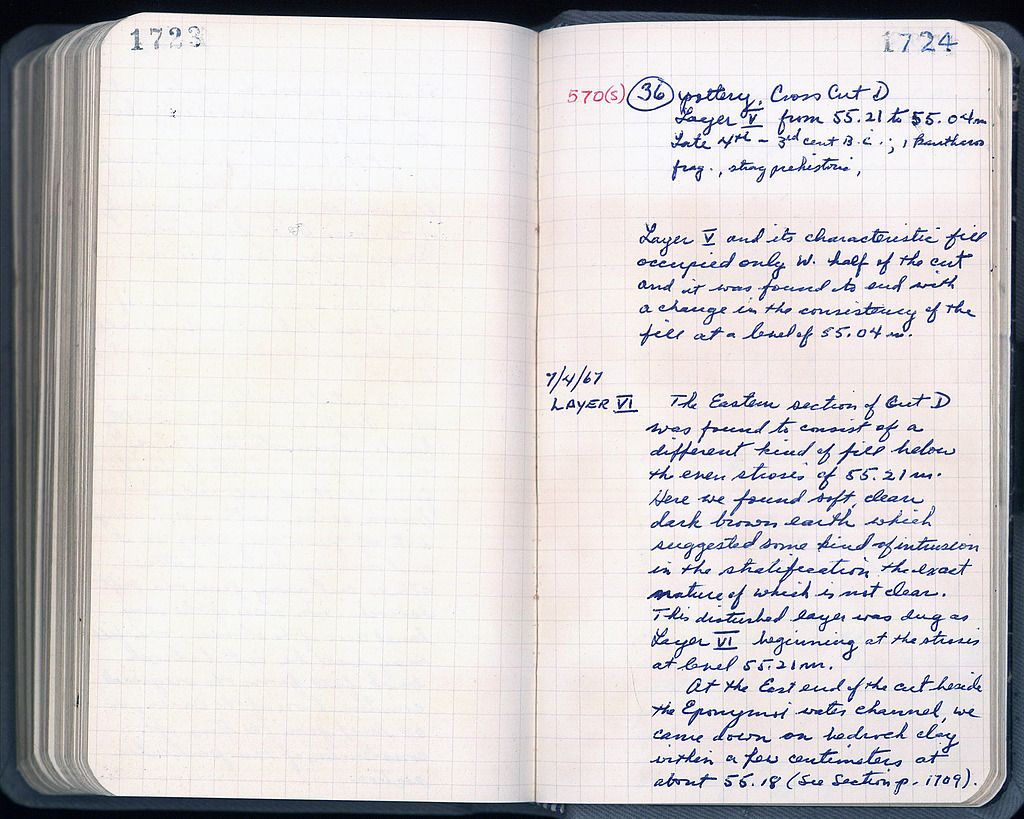 1723
1724
570(s) 36 pottery, Cross Cut D
Layer V from 55.21 to 55.04 m
Late 4th - 3rd cent B.C.; 1 Kantharos
frag., stray prehistoric,
Layer V and its characteristic fill
occupied only W. half of the cut
and it was found to end with
a change in the consistency of the
fill at a level of 55.04 m.
7/4/67
LAYER VI The Eastern section of Cut D
was found to consist of a
different kind of fill below
the even strosis of 55.21 m.
Here we found soft, clean
dark brown earth which
suggested some kind of intrusion
in the stratification the exact
nature of which is not clear.
This disturbed layer was dug as
Layer VI beginning at the strosis
at level 55.21 m.
At the East end of the cut beside
the Eponymoi water channel, we
came down on bedrock clay
within a few centimeters at
about 55.18 (See Section p. 1709).